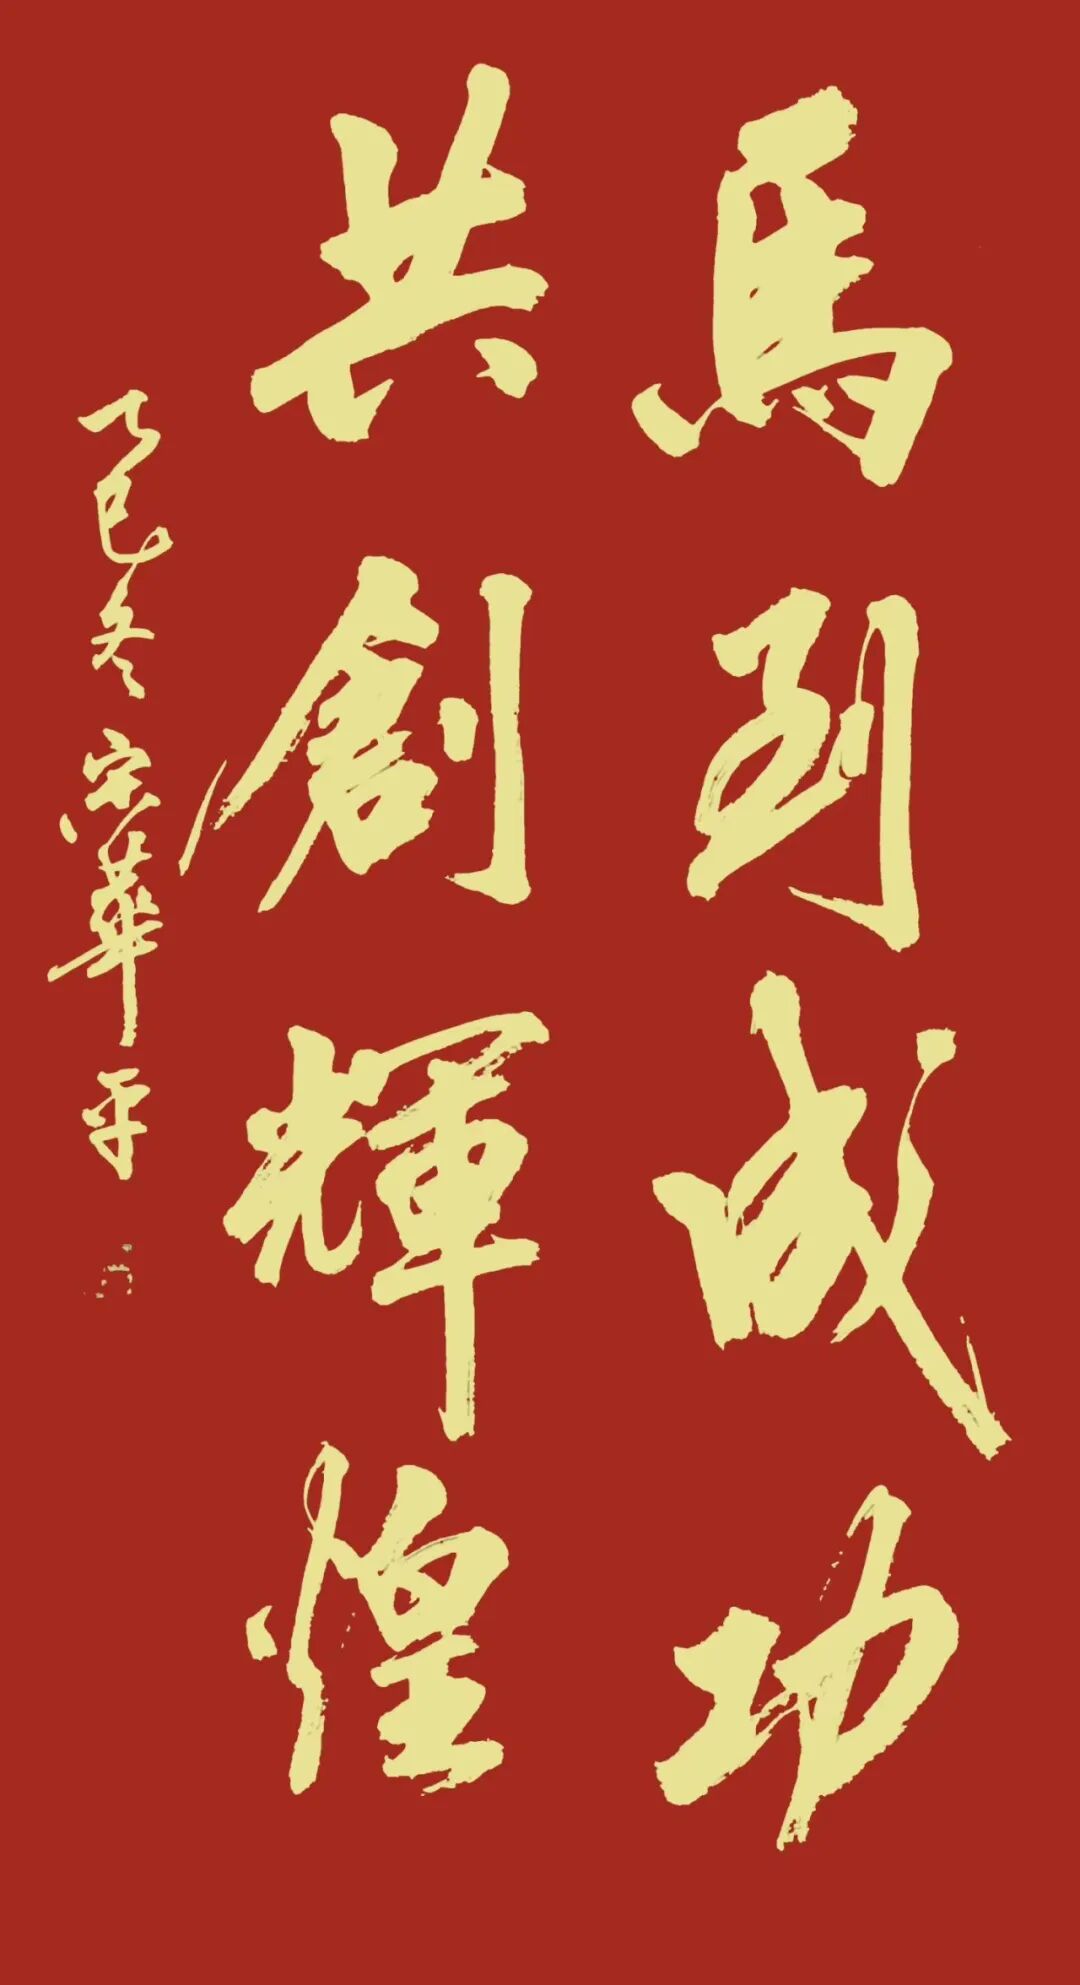 馬到成功
共創輝煌
乙巳冬宋華平